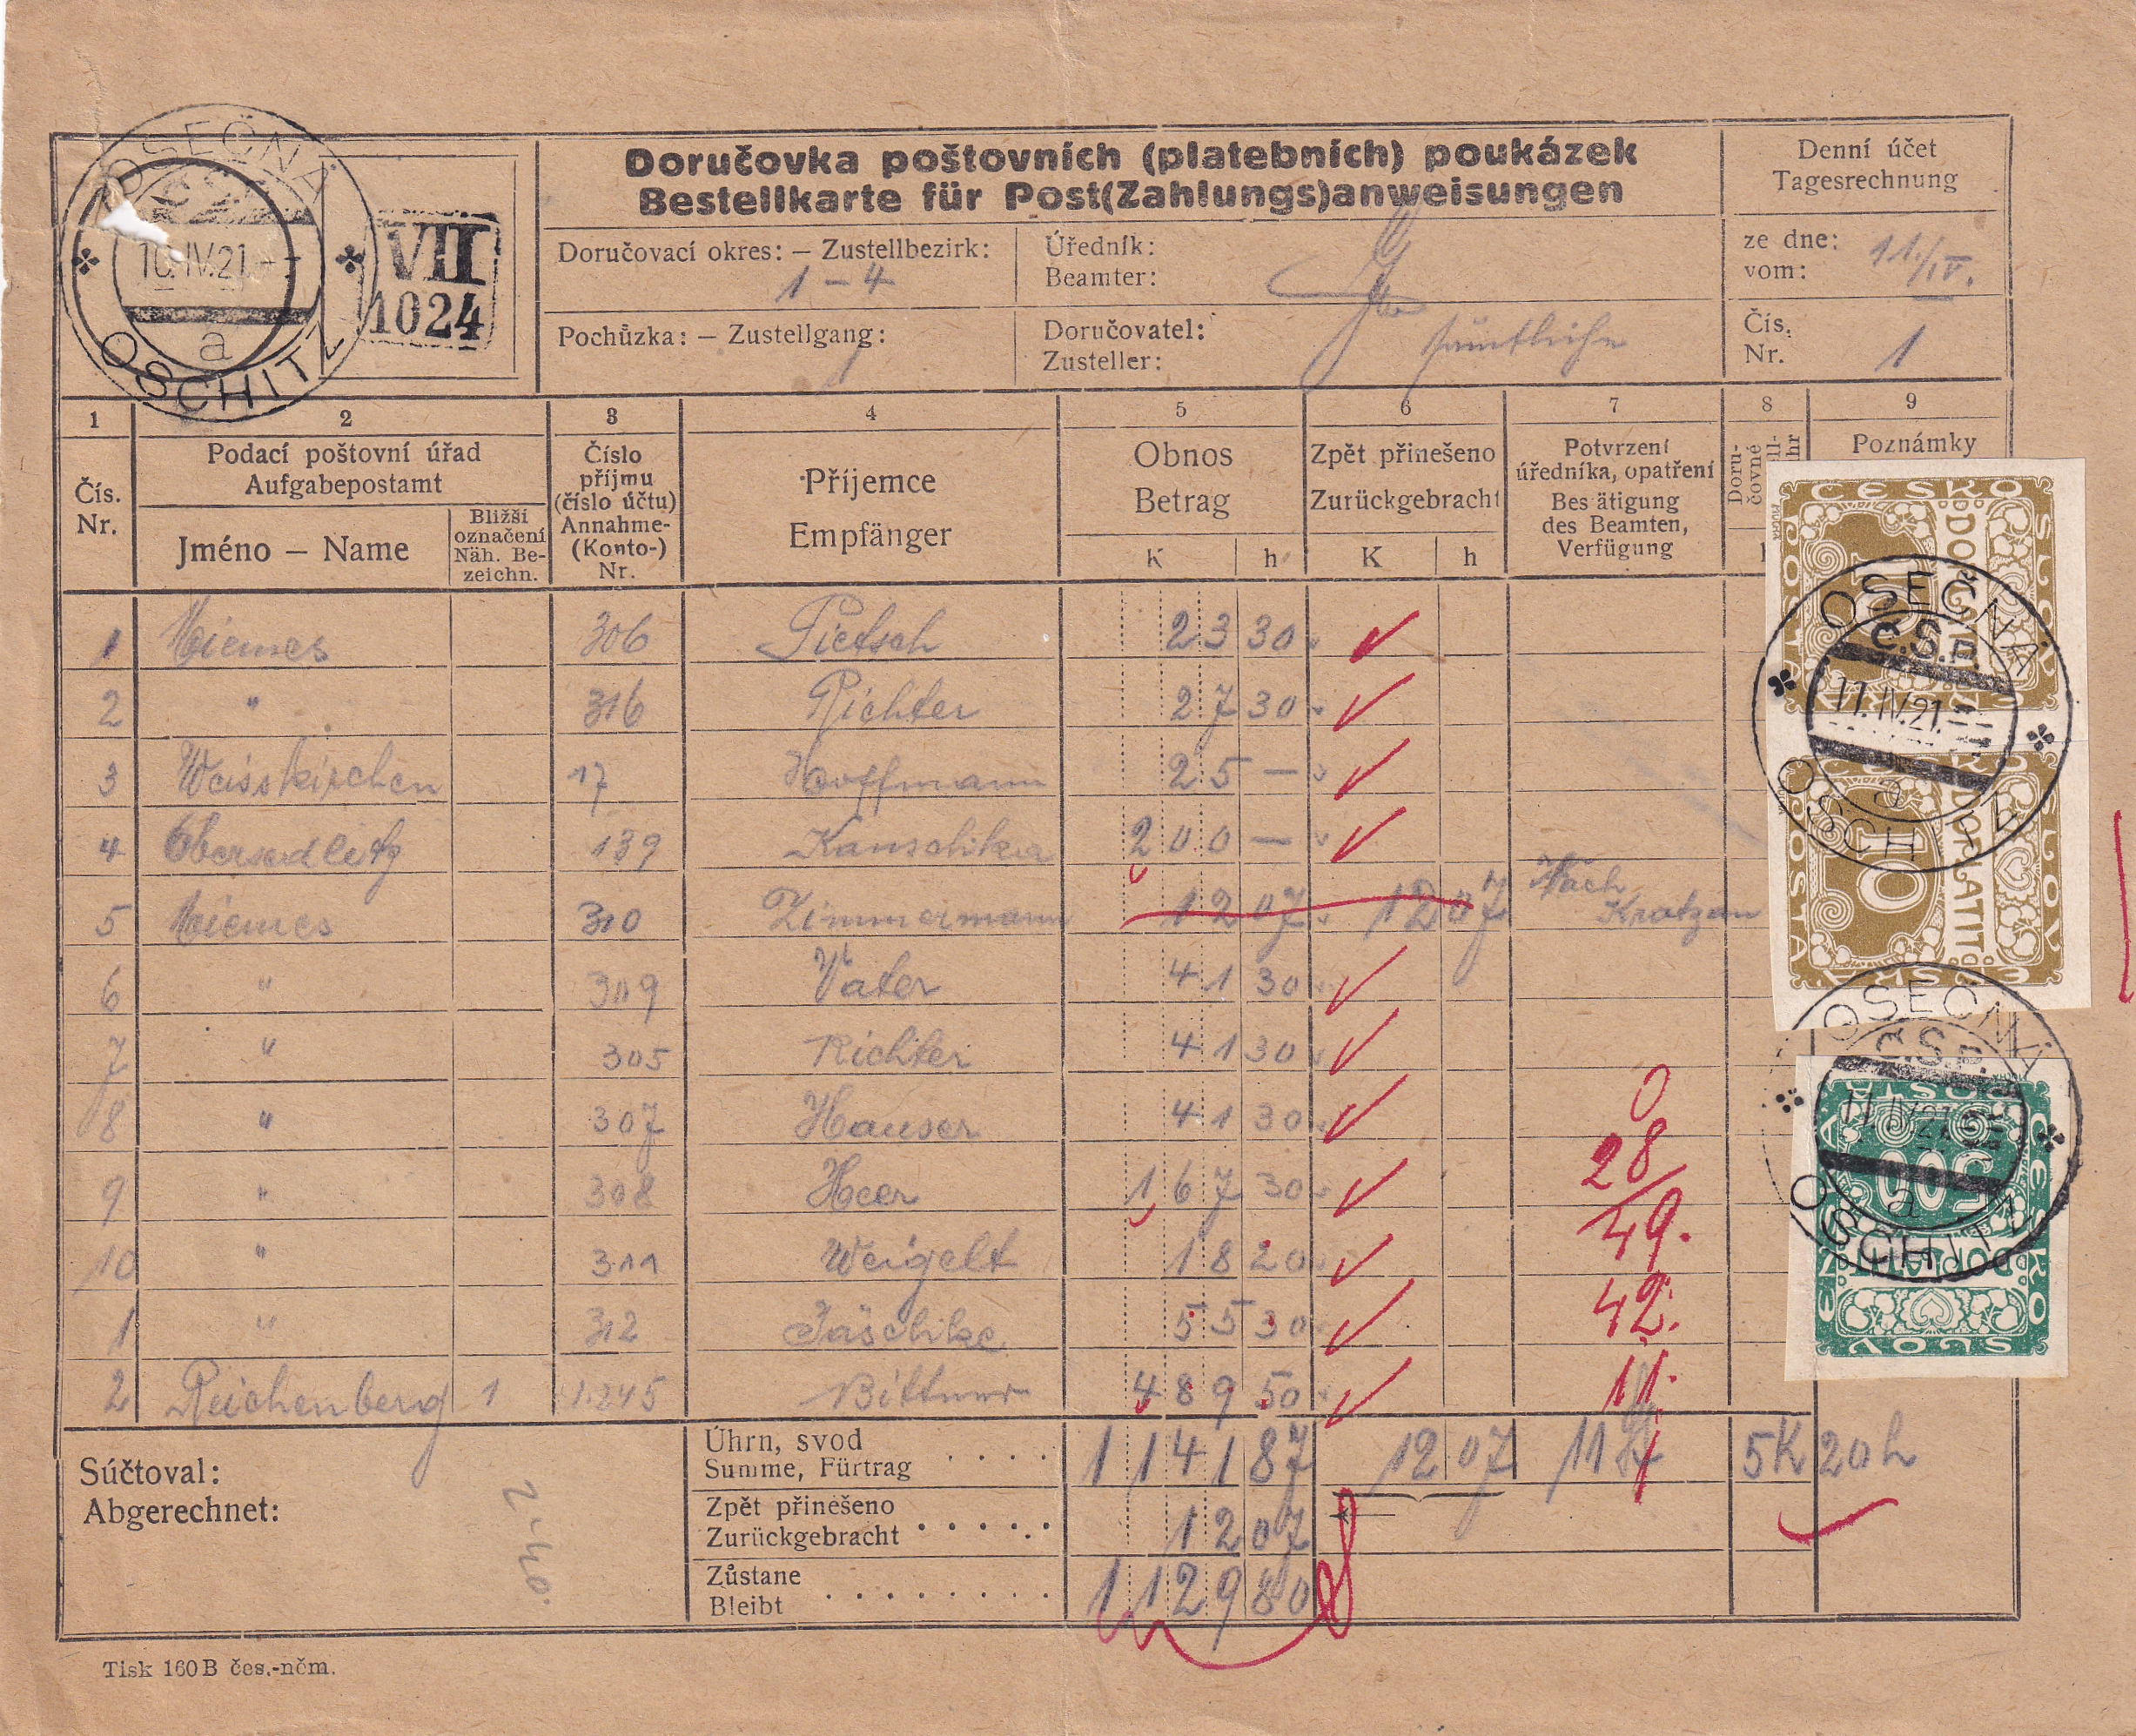 OSEČNÁ
10.IV.21
a
OSCHITZ
VII
1024
Doručovka poštovních (platebních) poukázek
Bestellkarte für Post(Zahlungs)anweisungen
Denní účet
Tagesrechnung
Doručovací okres: – Zustellbezirk:
1 – 4
Úředník:
Beamter:
ze dne:
vom:
11./IV.
Pochůzka: – Zustellgang:
1
Doručovatel:
Zusteller:
sämtliche
Čís.
Nr.
1
1 2 3 4 5 6 7 8 9
Čís.
Nr.
Podací poštovní úřad
Aufgabepostamt
Jméno – Name
Bližší
označení
Näh. Be-
zeichn.
Číslo
příjmu
(číslo účtu)
Annahme-
(Konto-)
Nr.
Příjemce
Empfänger
Obnos
Betrag
K h
Zpět přinešeno
Zurückgebracht
K h
Potvrzení
úředníka, opatření
Bes ätigung
des Beamten,
Verfügung
Doru-
čovné
Poznámky
1 Niemes 306 Pietsch 23 30
2 " 316 Richter 27 30
3 Weisskirchen 17 Hoffmann 25 –
4 Obersedlitz 139 200 –
5 Niemes 310 Zimmermann 12 07 12 07 Nach
Kratzau
6 " 309 Vater 41 30
7 " 305 Richter 41 30
8 " 307 Hauser 41 30
9 " 308 Heer 167 30
10 " 311 Weigelt 18 20
1 " 312 Jäschke 55 30
2 Reichenberg 1 1.245 Bittner 489 50
0
28
49.
42.
11.
Súčtoval:
Abgerechnet:
2·40.
Úhrn, svod
Summe, Fürtrag
1141 87 12 07 11 5K 20h
Zpět přinešeno
Zurückgebracht
12 07
Zůstane
Bleibt
1129 80
ČESKO
SLOVENSKÁ
POŠTA
DOPLATIT
10
OSEČNÁ
Č.S.P.
11.IV.21
a
OSCHITZ
ČESKO
SLOVENSKÁ
POŠTA
DOPLATIT
10
OSEČNÁ
Č.S.P.
11.IV.21
a
OSCHITZ
ČESKO
SLOVENSKÁ
POŠTA
DOPLATIT
500
Tisk 160 B čes.-něm.